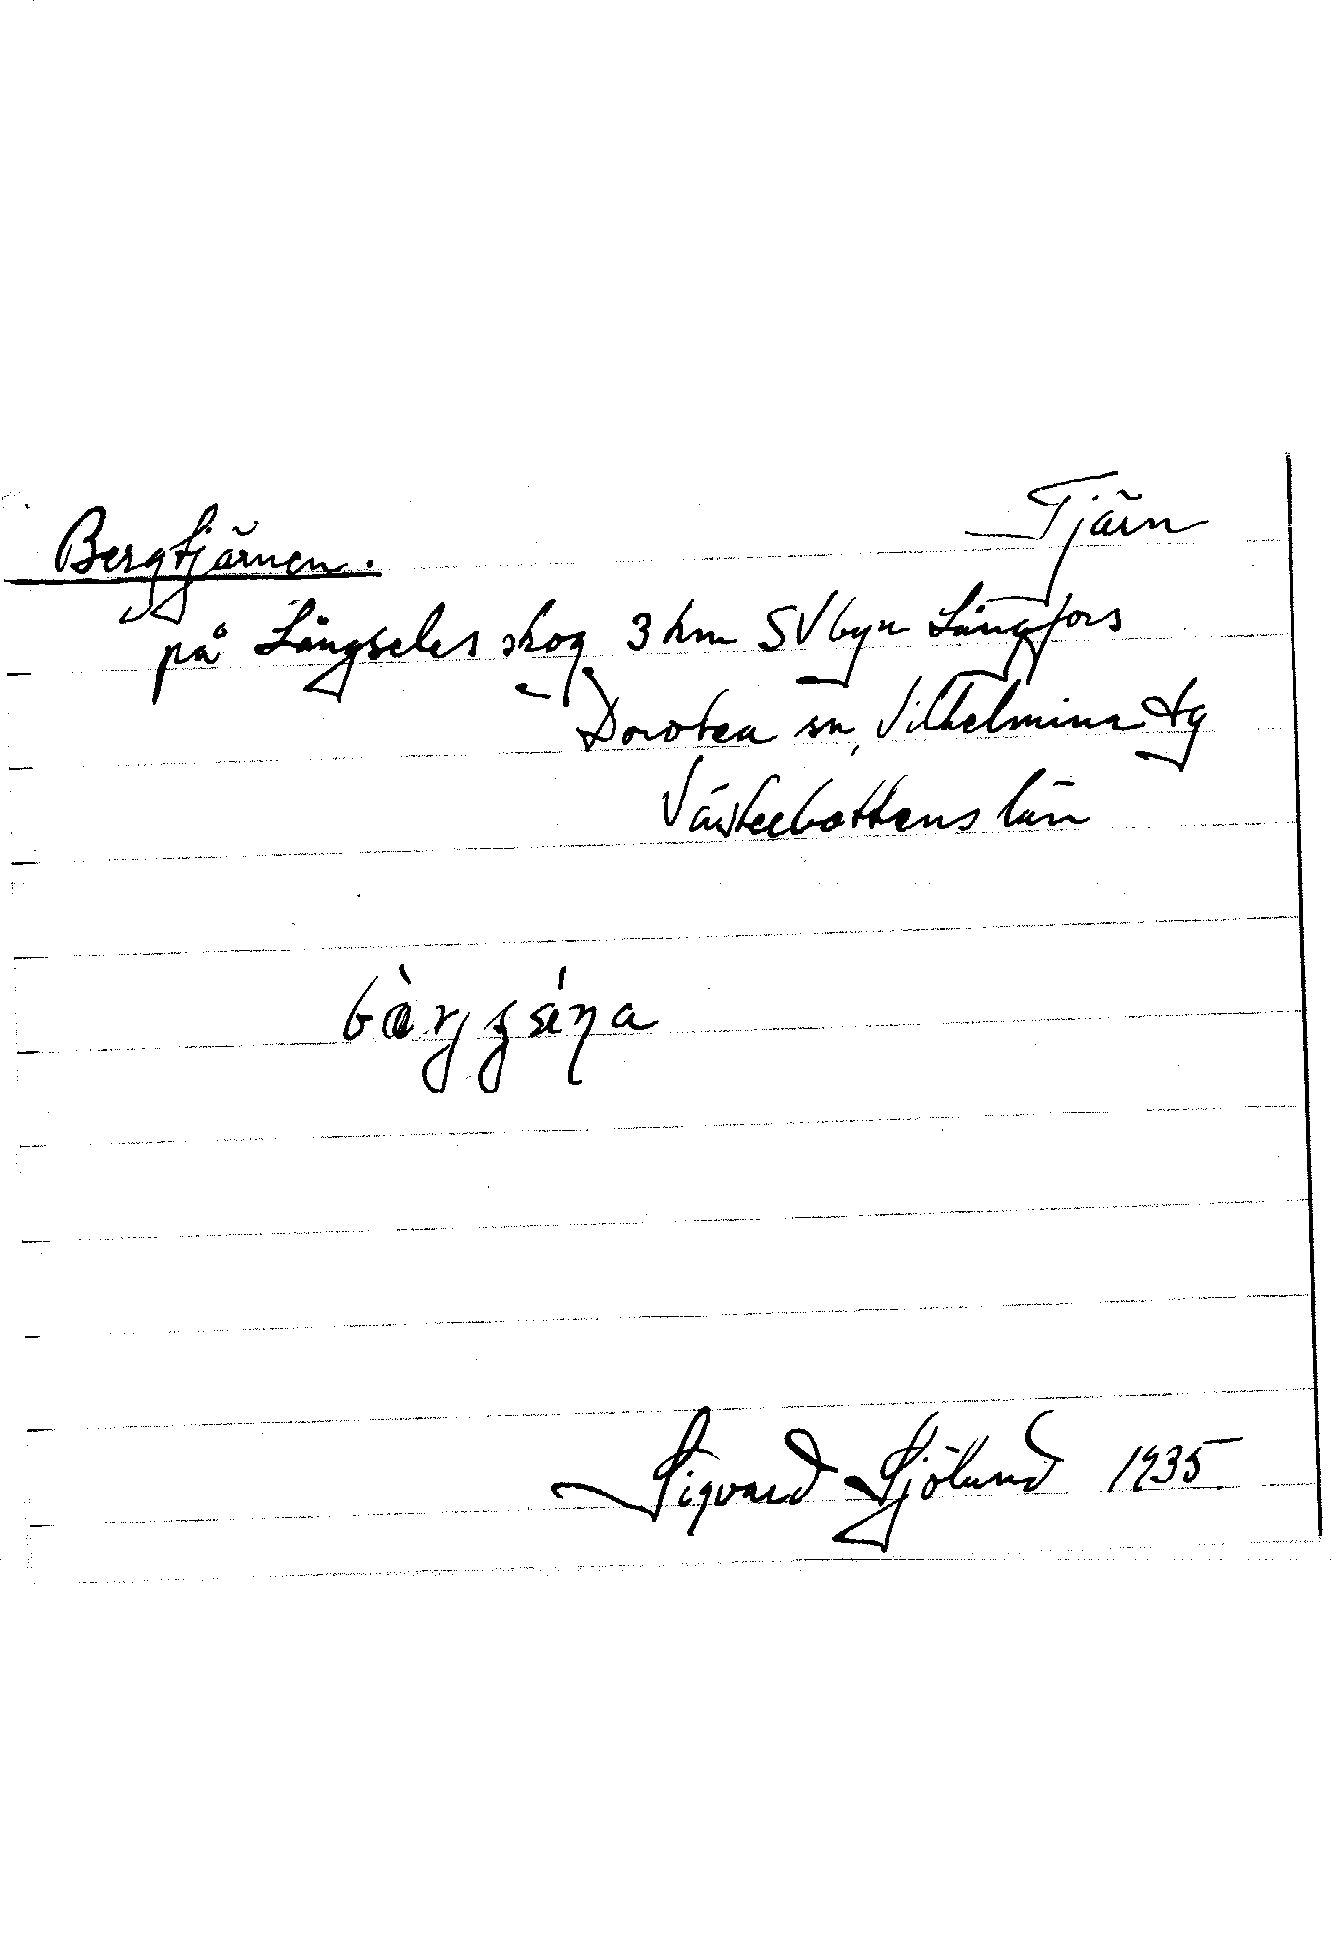 Bergtjärnen. Tjärn
på Långseles skog 3 km SV byn Långfors
Dorotea sn, Vilhelmina tg
Västerbottens län
Sigvard Sjölund 1935